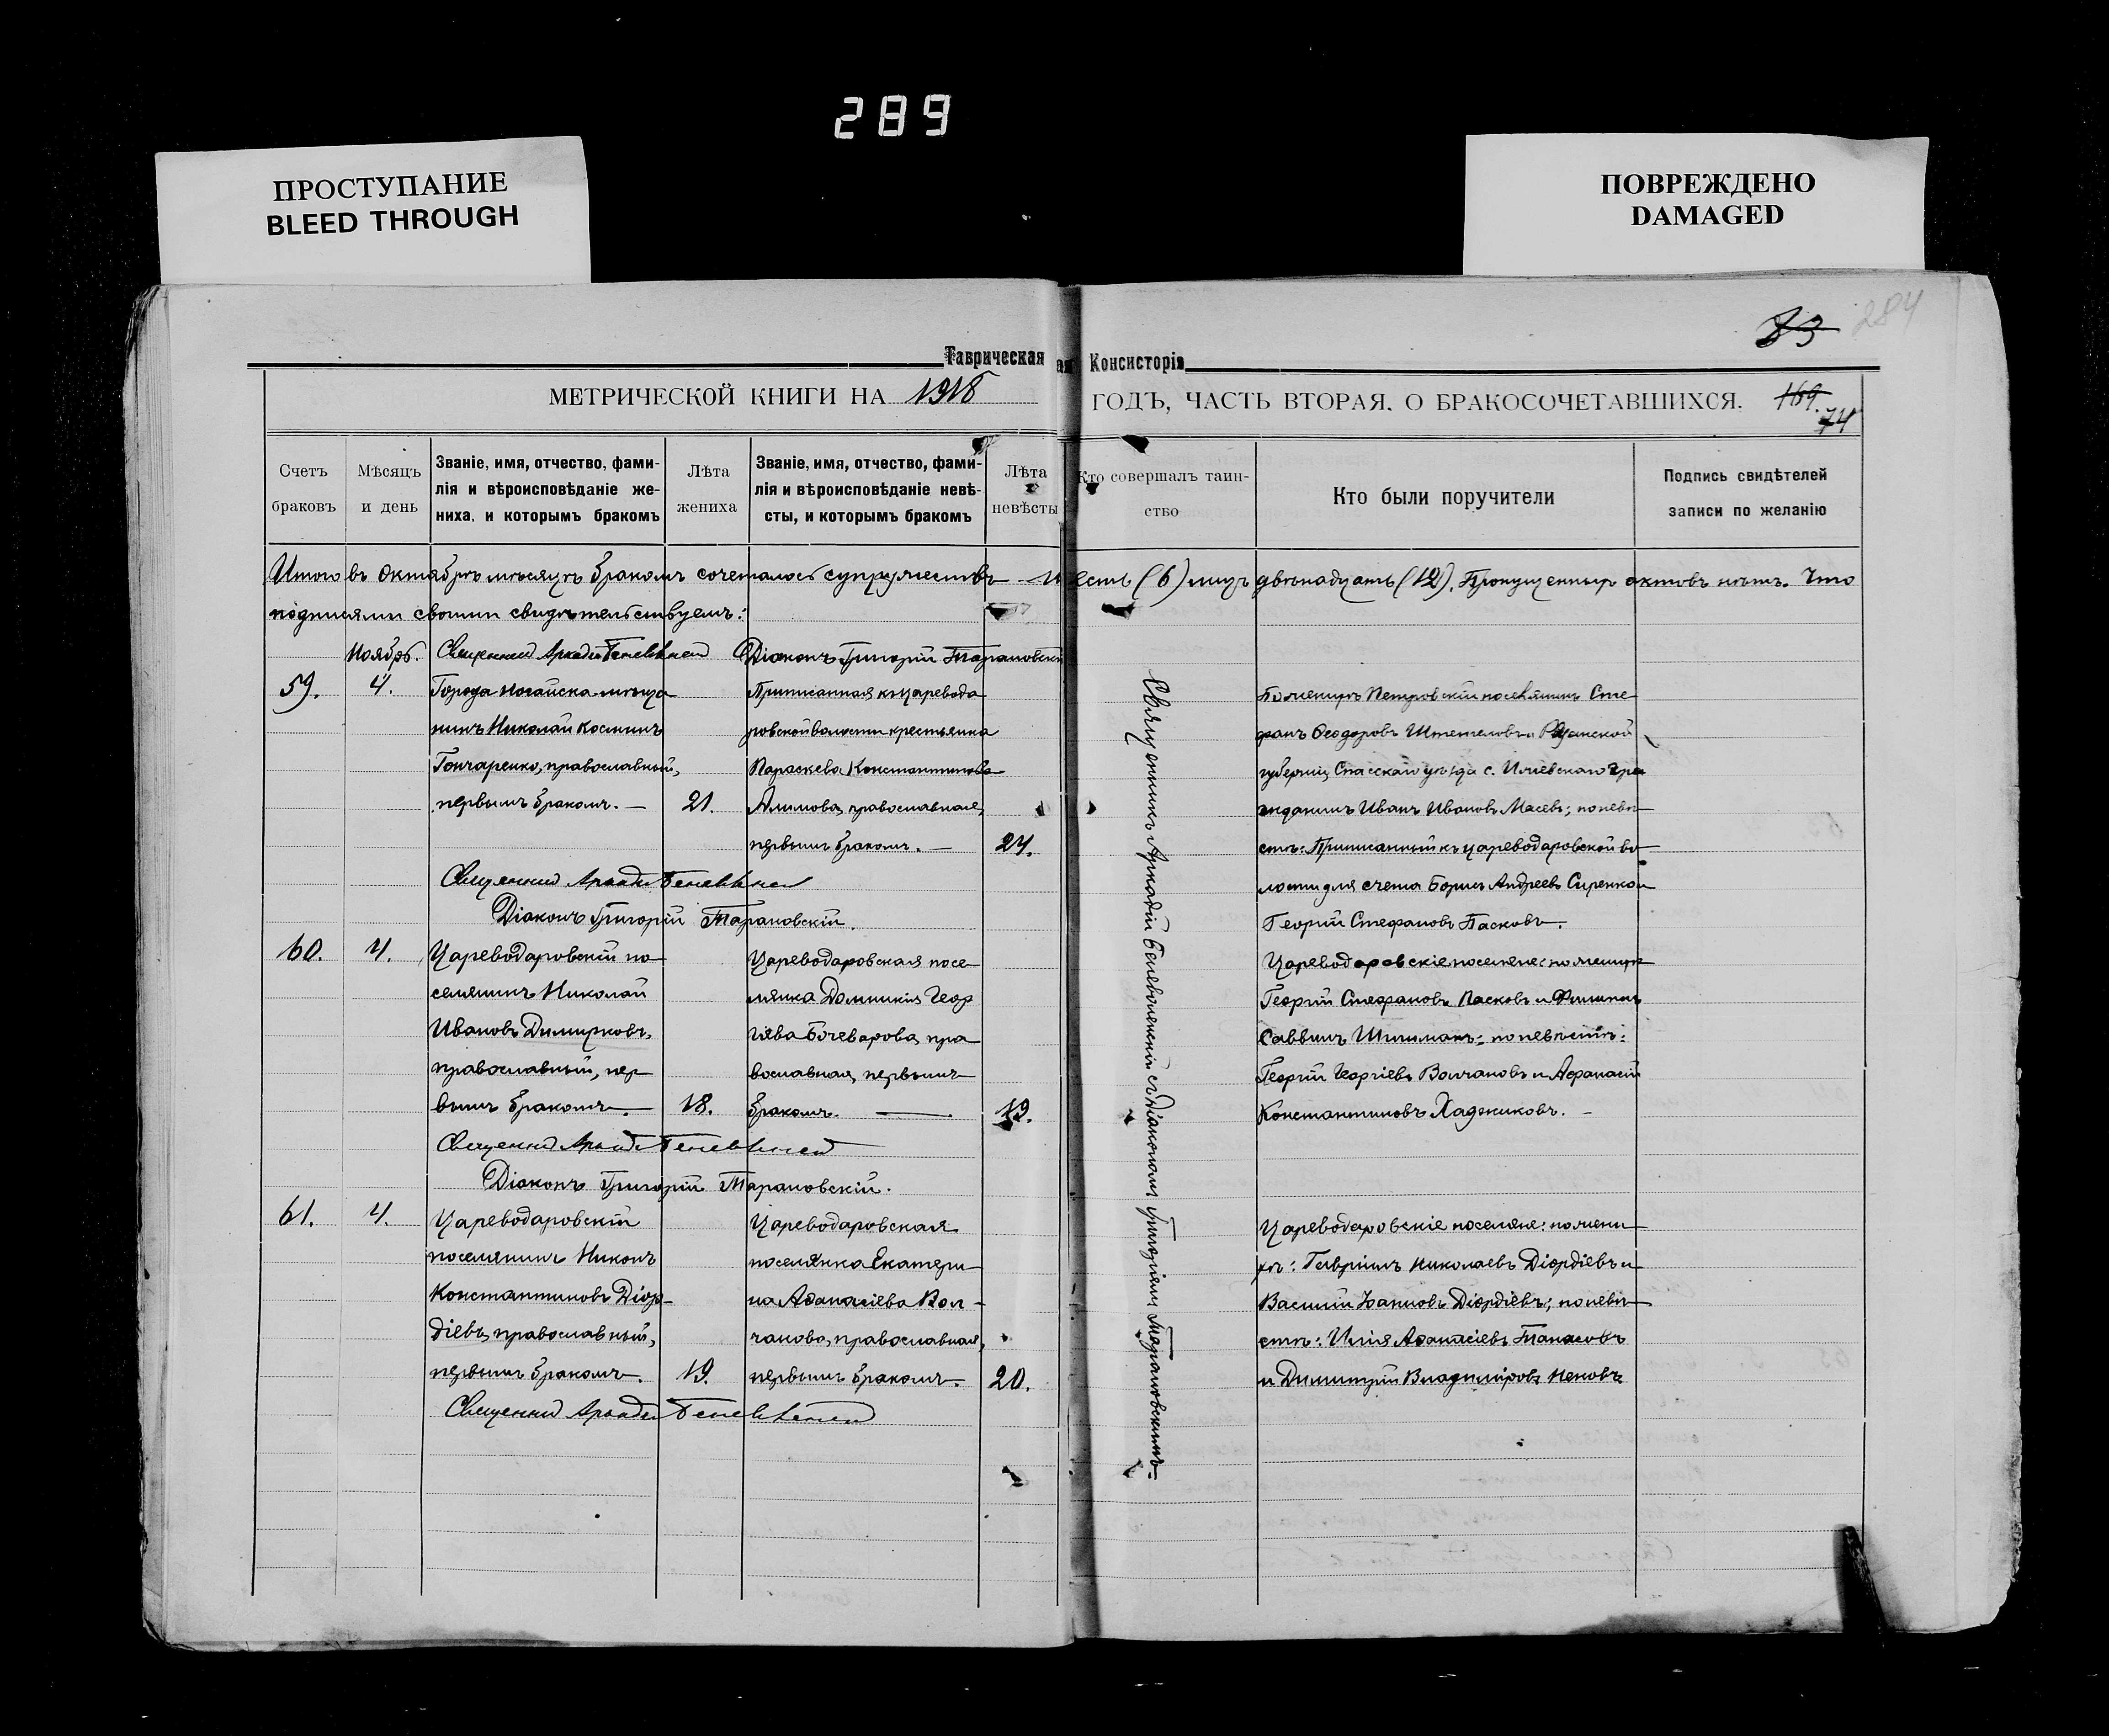 289
ПРОСТУПАНИЕ
BLEED THROUGH
ПОВРЕЖДЕНО
DAMAGED
284
73
Таврическая
ая Консисторія
МЕТРИЧЕСКОЙ КНИГИ НА 1918
ГОДЪ, ЧАСТЬ ВТОРАЯ. О БРАКОСОЧЕТАВШИХСЯ. 169.
74
Счетъ
браковъ
Мѣсяцъ
и день
Званіе, имя, отчество, фами-
лія и вѣроисповѣданіе же-
ниха, и которымъ бракомъ
Лѣта
жениха
Званіе, имя, отчество, фами-
лія и вѣроисповѣданіе невѣ-
сты, и которымъ бракомъ
Лѣта
невѣсты
Кто совершалъ таин-
ство
Кто были поручители
Подпись свидѣтелей
записи по желанію
Итого въ Октябрѣ мѣсяцѣ бракомъ сочеталось супружествъ шесть (6) лицъ двѣнадцать (12). Пропущенныхъ актовъ нѣтъ. Что
подписями своими свидѣтельствуемъ:
Ноябрь. Священникъ Аркадій Діаконъ Григорій Тарановскій
59. 4.
Города Ногайска мѣща
нинъ Николай Косминъ
Гончаренко, православный,
первымъ бракомъ. — 21.
Приписанная къ Царевода
ровской волости крестьянка
Параскева Константинова
Алимова, православная,
первымъ бракомъ. — 24.
Священникъ Аркадій
Діаконъ Григорій Тарановскій.
Священникъ Аркадій съ Діакономъ Григоріемъ Тарановскимъ.
По женихѣ Петровскій поселянинъ Сте
фанъ Ѳеодоровъ и Рязанской
губерніи Спасскаго уѣзда с. гра
жданинъ Иванъ Ивановъ Масевъ; по невѣ
стѣ: Приписанный къ Цареводаровской во
лости для счета Борисъ Андреевъ Сиренко и
Георгій Стефановъ Пасковъ.
60. 4.
Цареводаровскій по
селянинъ Николай
Ивановъ Димирковъ,
православный, пер
вымъ бракомъ. — 18.
Цареводаровская посе
лянка Домникія Геор
гіева Бочеварова, пра
вославная, первымъ
бракомъ. — 19.
Священникъ Аркадій
Діаконъ Григорій Тарановскій.
Цареводаровскіе поселяне: по женихѣ
Георгій Стефановъ Пасковъ и Филиппъ
Саввинъ Шишманъ; по невѣстѣ:
Георгій Георгіевъ Волчановъ и Афанасій
Константиновъ Хаджиковъ. -
61. 4.
Цареводаровскій
поселянинъ Никонъ
Константиновъ Діор-
діевъ, православный,
первымъ бракомъ. 19.
Цареводаровская
поселянка Екатери
на Аѳанасіева Вол-
чанова, православная,
первымъ бракомъ. 20.
Священникъ Аркадій
Цареводаровскіе поселяне: по жени
хѣ: Гавріилъ Николаевъ Діордіевъ и
Василій Іоанновъ Діордіевъ; по невѣ
стѣ: Илія Аѳанасіевъ Танасовъ
и Димитрій Владиміровъ Неновъ